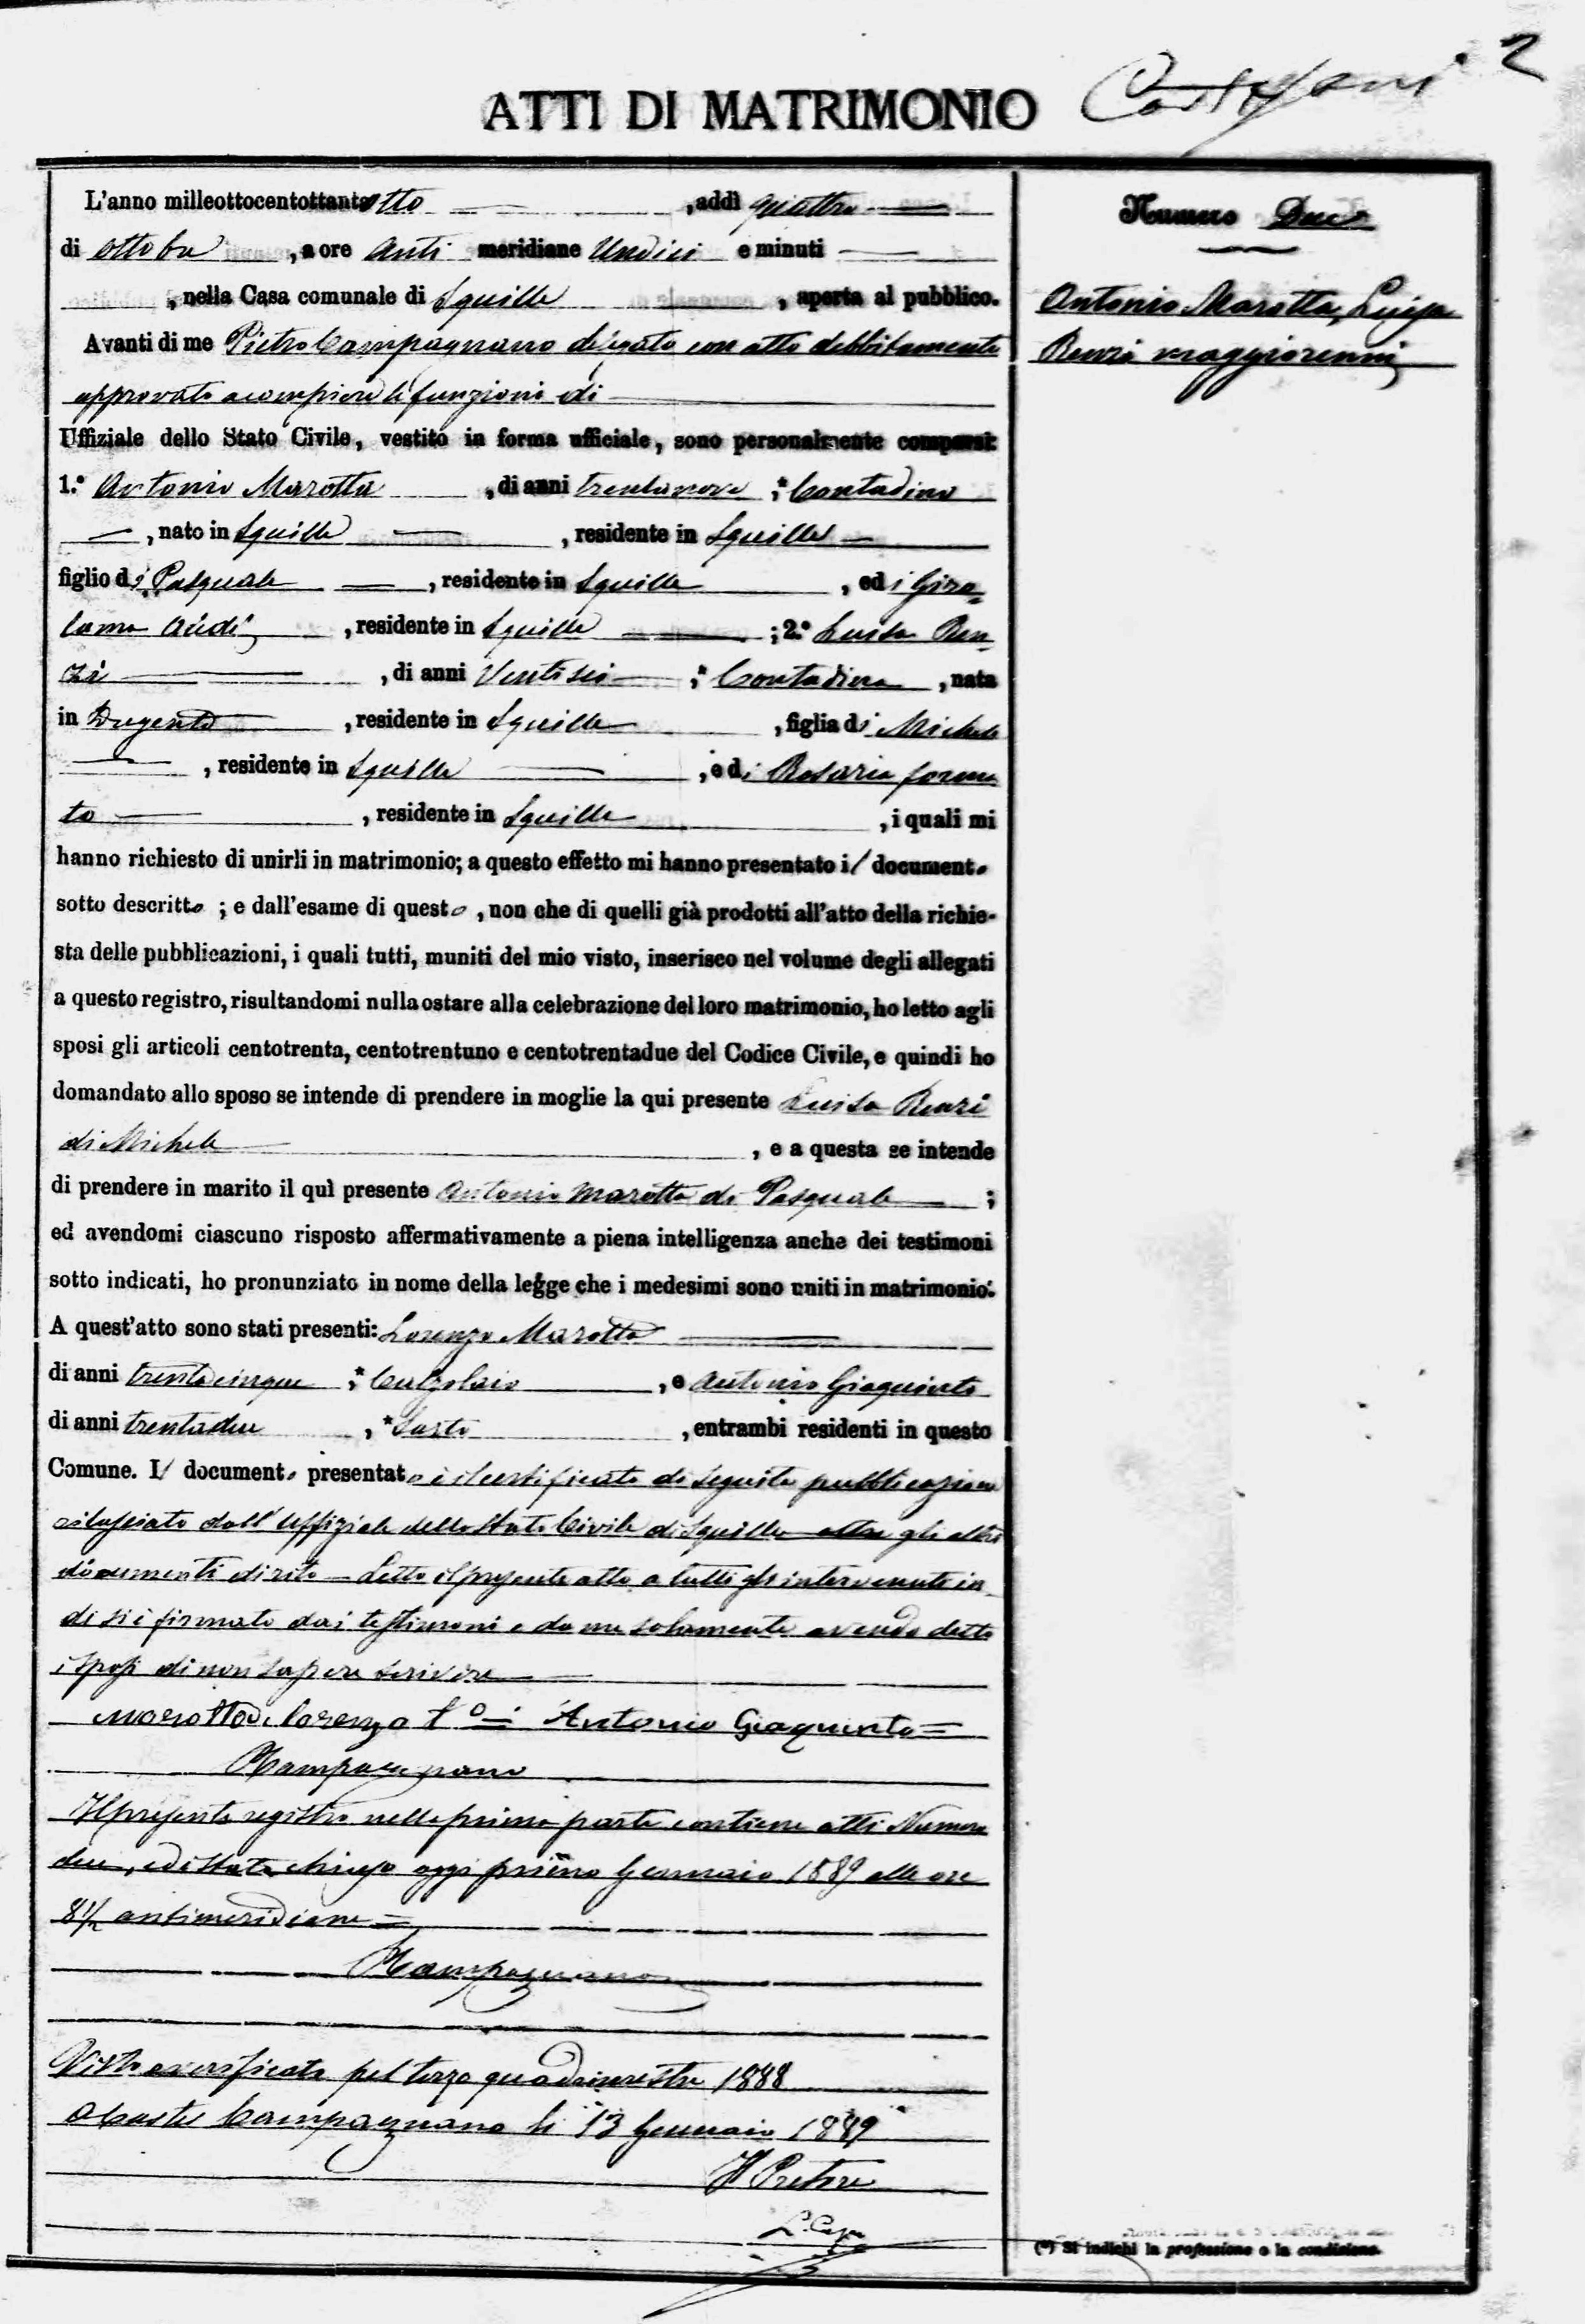 2
ATTI DI MATRIMONIO
L'anno milleottocentottantotto, addì quattro
di ottobre, a ore anti meridiane undici e minuti
, nella Casa comunale di Squille, aperta al pubblico.
Avanti di me Pietro Campagnano delegato con atto debbitamente
approvato a compiere le funzioni di
Uffiziale dello Stato Civile, vestito in forma ufficiale, sono personalmente comparsi:
1.° Antonio Marotta, di anni trentanove, * Contadino
, nato in Squille, residente in Squille
figlio di Pasquale, residente in Squille, ed i Giro=
lama, residente in Squille; 2.° Luisa Ren
zi, di anni Ventisei; * Contadina, nata
in Dugenta, residente in Squille, figlia di Michele
, residente in Squille, e di Rosaria forma
to, residente in Squille, i quali mi
hanno richiesto di unirli in matrimonio; a questo effetto mi hanno presentato il documento
sotto descritto; e dall'esame di questo, non che di quelli già prodotti all'atto della richie-
sta delle pubblicazioni, i quali tutti, muniti del mio visto, inserisco nel volume degli allegati
a questo registro, risultandomi nulla ostare alla celebrazione del loro matrimonio, ho letto agli
sposi gli articoli centotrenta, centotrentuno e centotrentadue del Codice Civile, e quindi ho
domandato allo sposo se intende di prendere in moglie la qui presente Luisa Renzi
di Michele, e a questa se intende
di prendere in marito il quì presente Antonio Marotta di Pasquale;
ed avendomi ciascuno risposto affermativamente a piena intelligenza anche dei testimoni
sotto indicati, ho pronunziato in nome della legge che i medesimi sono uniti in matrimonio.
A quest'atto sono stati presenti: Lorenzo Marotta
di anni trentacinque; * Calzolaio, e Antonio Giaquinto
di anni trentadue, * Sarto, entrambi residenti in questo
Comune. Il documento presentato è il certificato di seguita pubblicazione
rilasciato dall'Uffiziale dello Stato Civile di Squille oltre gli altri
documenti di rito — Letto il presente atto a tutti gli intervenuti in
di si è firmato dai testimoni e da me solamente avendo detto
i sposi di non sapere scrivere
Marotta Lorenzo t° = Antonio Giaquinto =
Campagnano
Il presente registro nella prima parte contiene atti Numero
due, ed è stato chiuso oggi primo Gennaio 1889 alle ore
8 1/2 antimeridiane =
Campagnano
Visto e verificato pel terzo quadrimestre 1888
Castel Campagnano li 13 Gennaio 1889
Il Pretore
Numero Due
Antonio Marotta, Luisa
Renzi maggiorenni
(*) Si indichi la professione o la condizione.